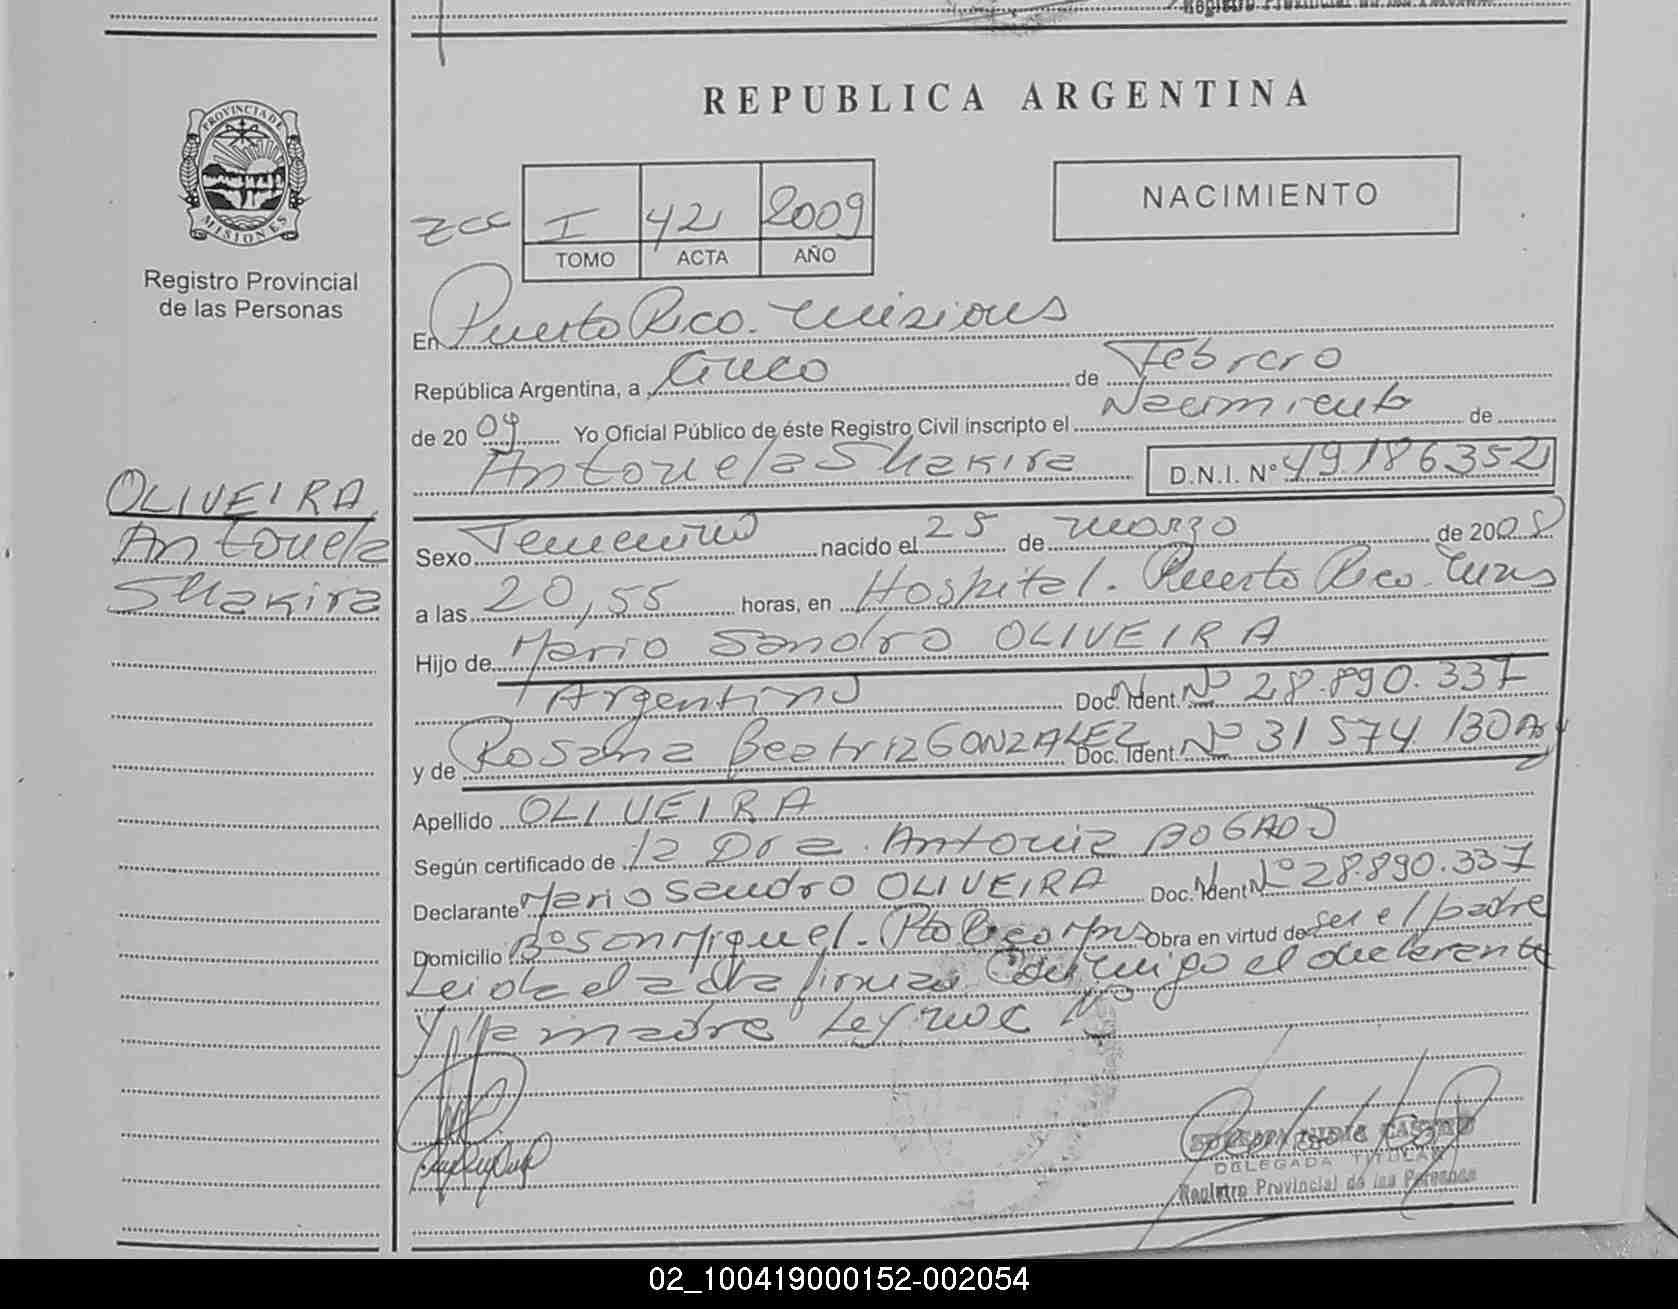 REPUBLICA ARGENTINA
PROVINCIA DE
MISIONES
Registro Provincial
de las Personas
I 42 2009
TOMO ACTA AÑO
NACIMIENTO
En Puerto Rico. Misiones
República Argentina, a Cinco de Febrero
de 2009 Yo Oficial Público de éste Registro Civil inscripto el Nacimiento de
Antonela Shakira D.N.I. N° 49186352
OLIVEIRA
Antonela
Shakira
Sexo Femenino nacido el 25 de marzo de 2008
a las 20,55 horas, en Hospital. Puerto Rico. Mnes
Hijo de Mario Sandro OLIVEIRA
Argentino Doc. Ident. N° 28.890.337
y de Rosana Beatriz GONZALEZ Doc. Ident. N° 31 574 130
Apellido OLIVEIRA
Según certificado de la Dra. Antonia BOGADO
Declarante Mario Sandro OLIVEIRA Doc. Ident N° 28.890.337
Domicilio B° San Miguel. Pto Rico Mns Obra en virtud de ser el padre
Leida el acta firman Conmigo el declarante
y la madre
DELEGADA TITULAR
Registro Provincial de las Personas
02_100419000152-002054